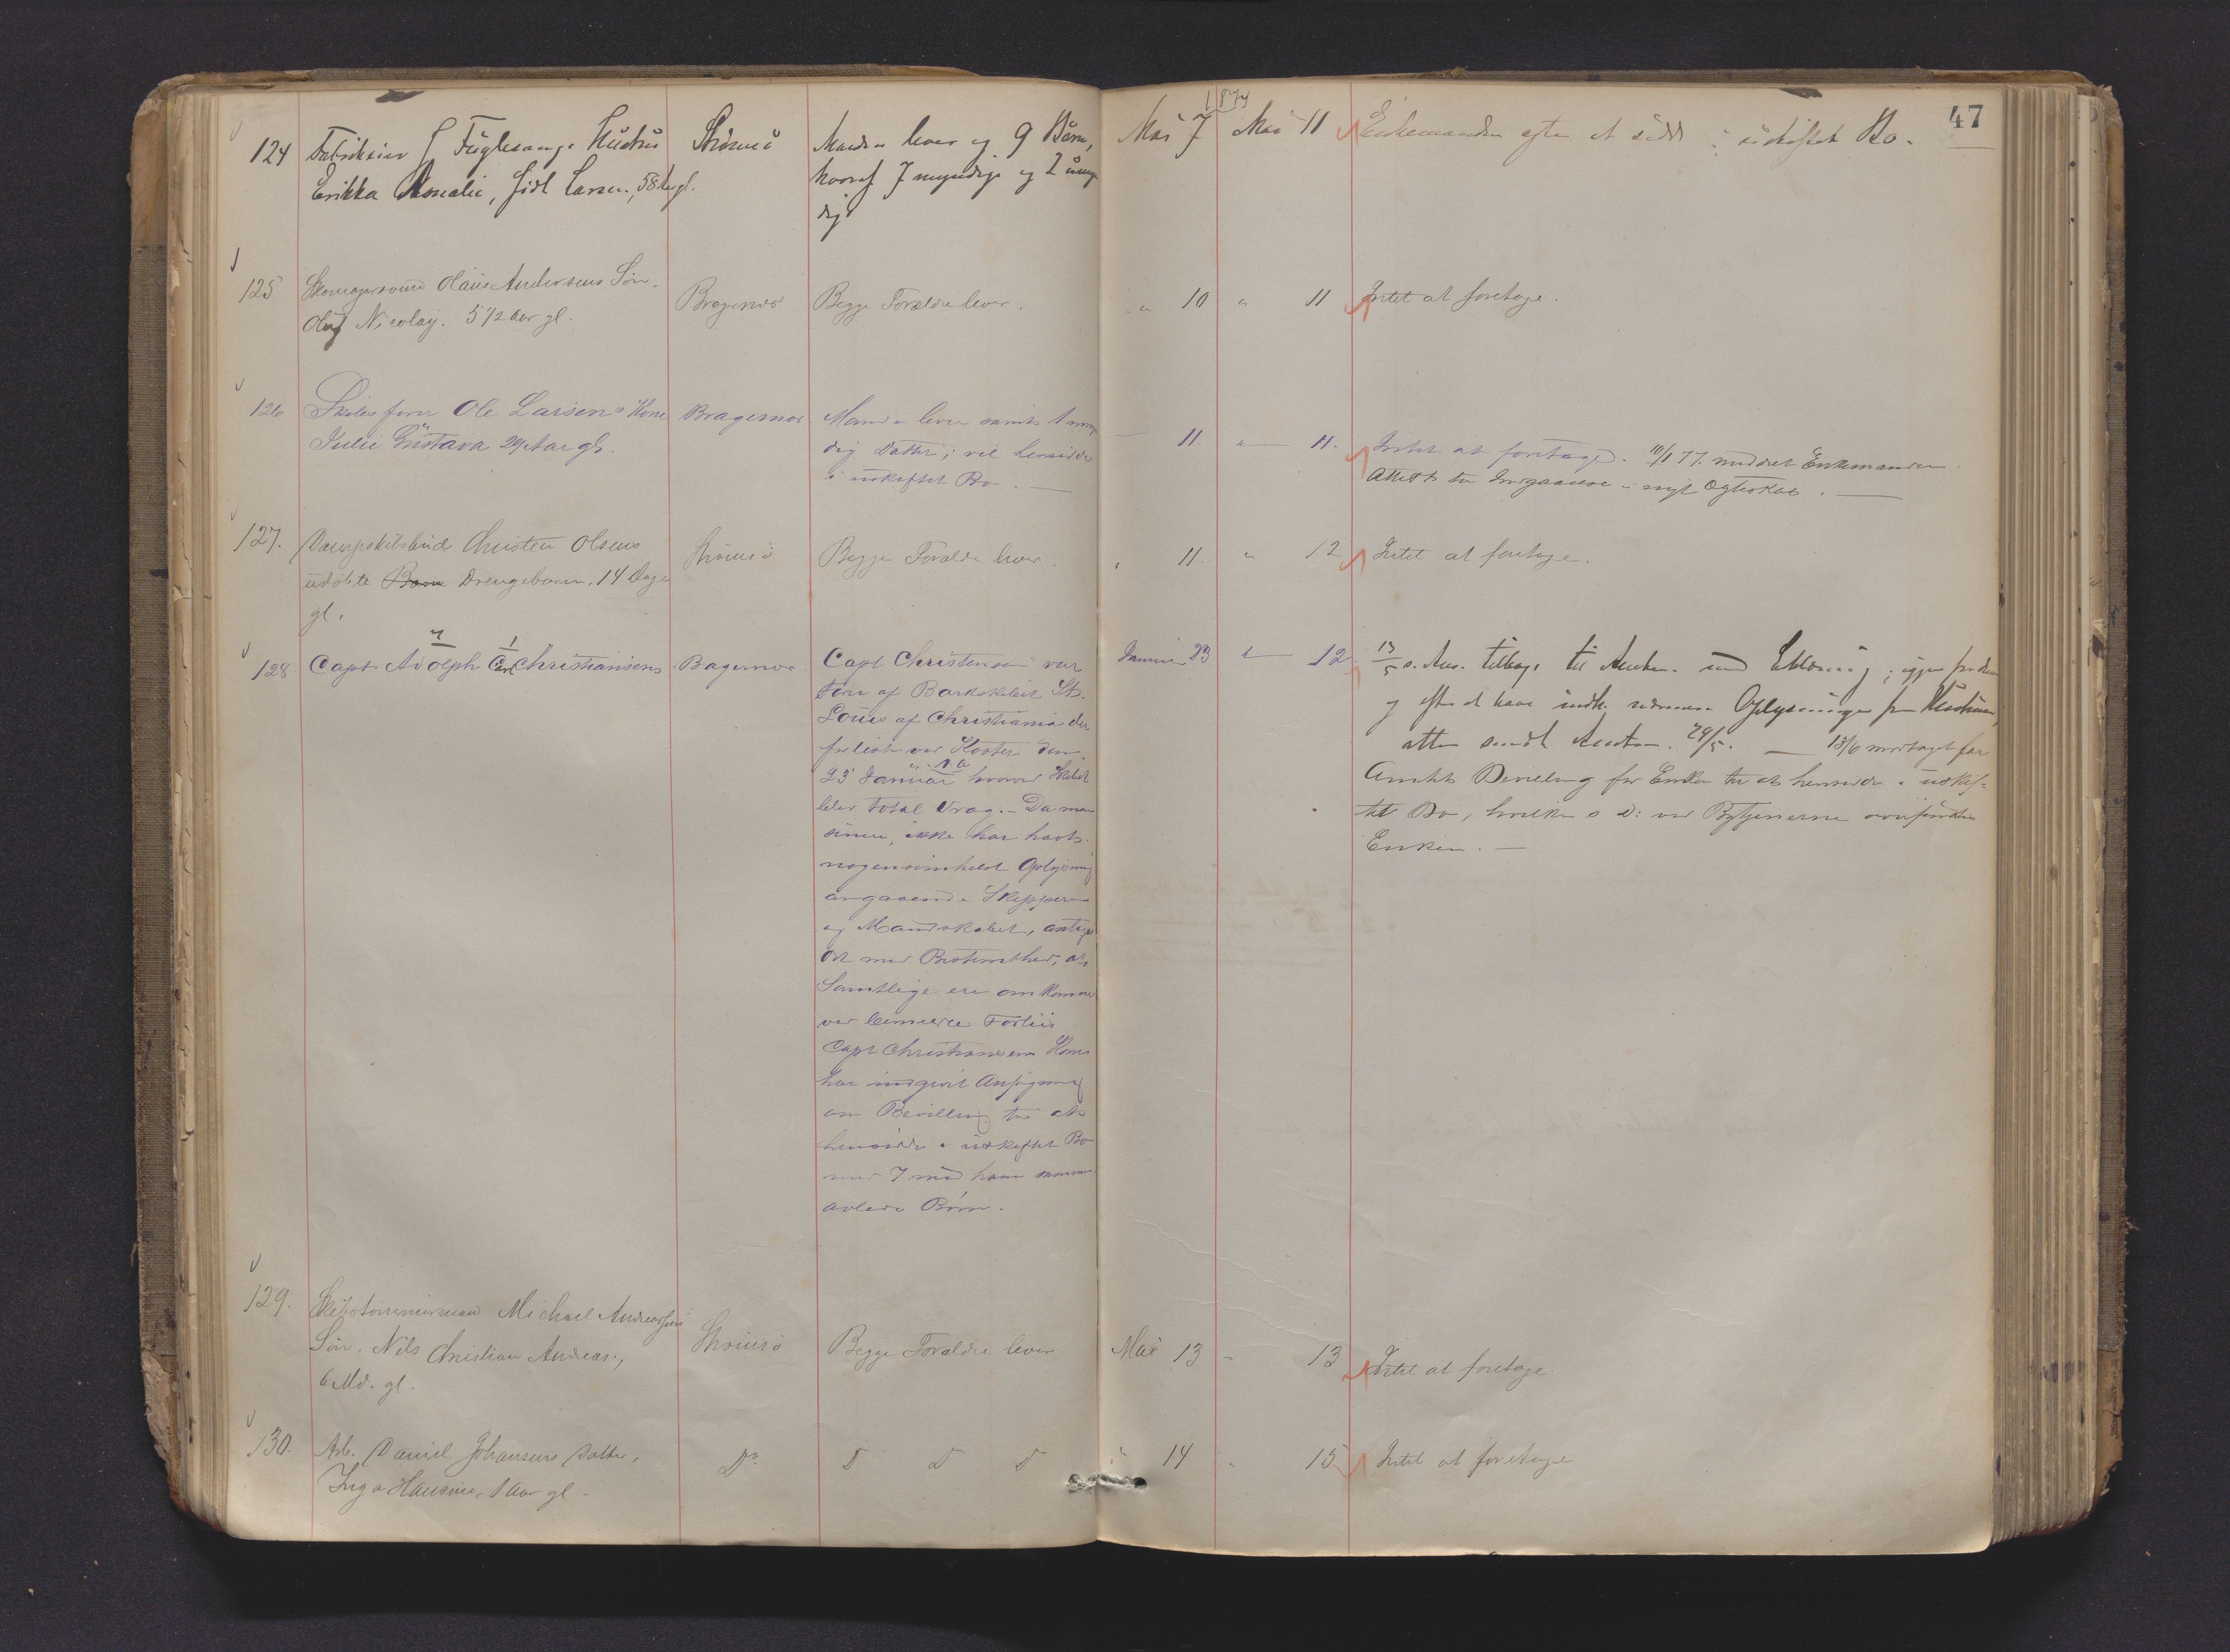 1874
47
124 Fabrikeier J Fuglesangs Hustru Strömsö Manden lever og 9 Børn, Mai 7 Mai 11 Enkemanden agter at sidde i uskiftet Bo.
Erikka Amalie, født Larsen, 58 Aar gl. hvoraf 7 myndige og 2 umyn
dige
125 Skomagersvend Olaus Andersens Søn, Bragernes Begge Forældre lever. " 10 " 11 Intet at foretage.
Oluf Nicolay. 5 1/2 Aar gl.
126 Skibsfører Ole Larsens Kone Bragernes Manden lever samt 1 umyn 11. " 11. Intet at foretage. 10/1 77. meddelt Enkemanden
Julie Gustava 29 Aar gl. dig Datter; vil hensidde Attest til Indgaaelse i nyt Ægteskab.
i uskiftet Bo.
127. Dampskibsbud Christen Olsens Strömsö Begge Forældre lever. " 11. " 12 Intet at foretage.
udøbte Barn Drengebarn, 14 Dage
gl.
128 Capt Adolph Carl Christiansens Bagernes Capt Christensen var Januar 23 12. 13/5 s. Aar. tilbage til Amtm. med Erklæring;
Fører af Barkskibet St. og efter at have indh. nærmere Oplysninger fra Hustruen,
Louis af Christiania der atter sendt Amtm. 29/5. 13/6 modtaget fra
forliste ved Koster den Amtet Bevilling for Enken til at hensidde i uskif-
23 Januar d. A. hvorved Skibet tet Bo, hvilken s. D. ved Bytjenerne oversendtes
blev total Vrag. Da man Enken.
senere ikke har havt
nogensomhelst Oplysning
angaaende Skipperen
og Mandskabet, antages
det med Bestemthed, at
Samtlige ere omkomne
ved bemeldte Forliis
Capt Christiansens Kone
har indgivet Ansøgning
om Bevilling til at
hensidde i uskiftet Bo
med 7 med ham sammen
avlede Børn.
129. Skibstømmermand Michael Andreassens Strömsö Begge Forældre lever Mai 13 " 13 Intet at foretage
Søn. Nils Christian Andreas.,
6 Md. gl.
130. Arb. Daniel Johansens Datter, Do. D D D " 14 " 15 Intet at foretage
Inga Hansine, 1 Aar gl.